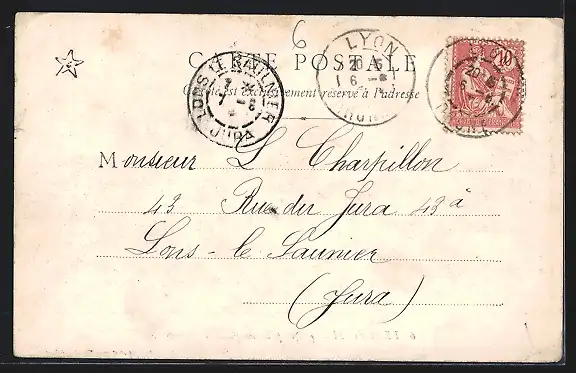 6
CARTE POSTALE
Ce côté est exclusivement réservé à l'adresse
LYON
RHONE
LONS-LE-SAUNIER
JURA
10
Monsieur L Charpillon
43 Rue du Jura 43 à
Lons-le Saunier
(Jura)